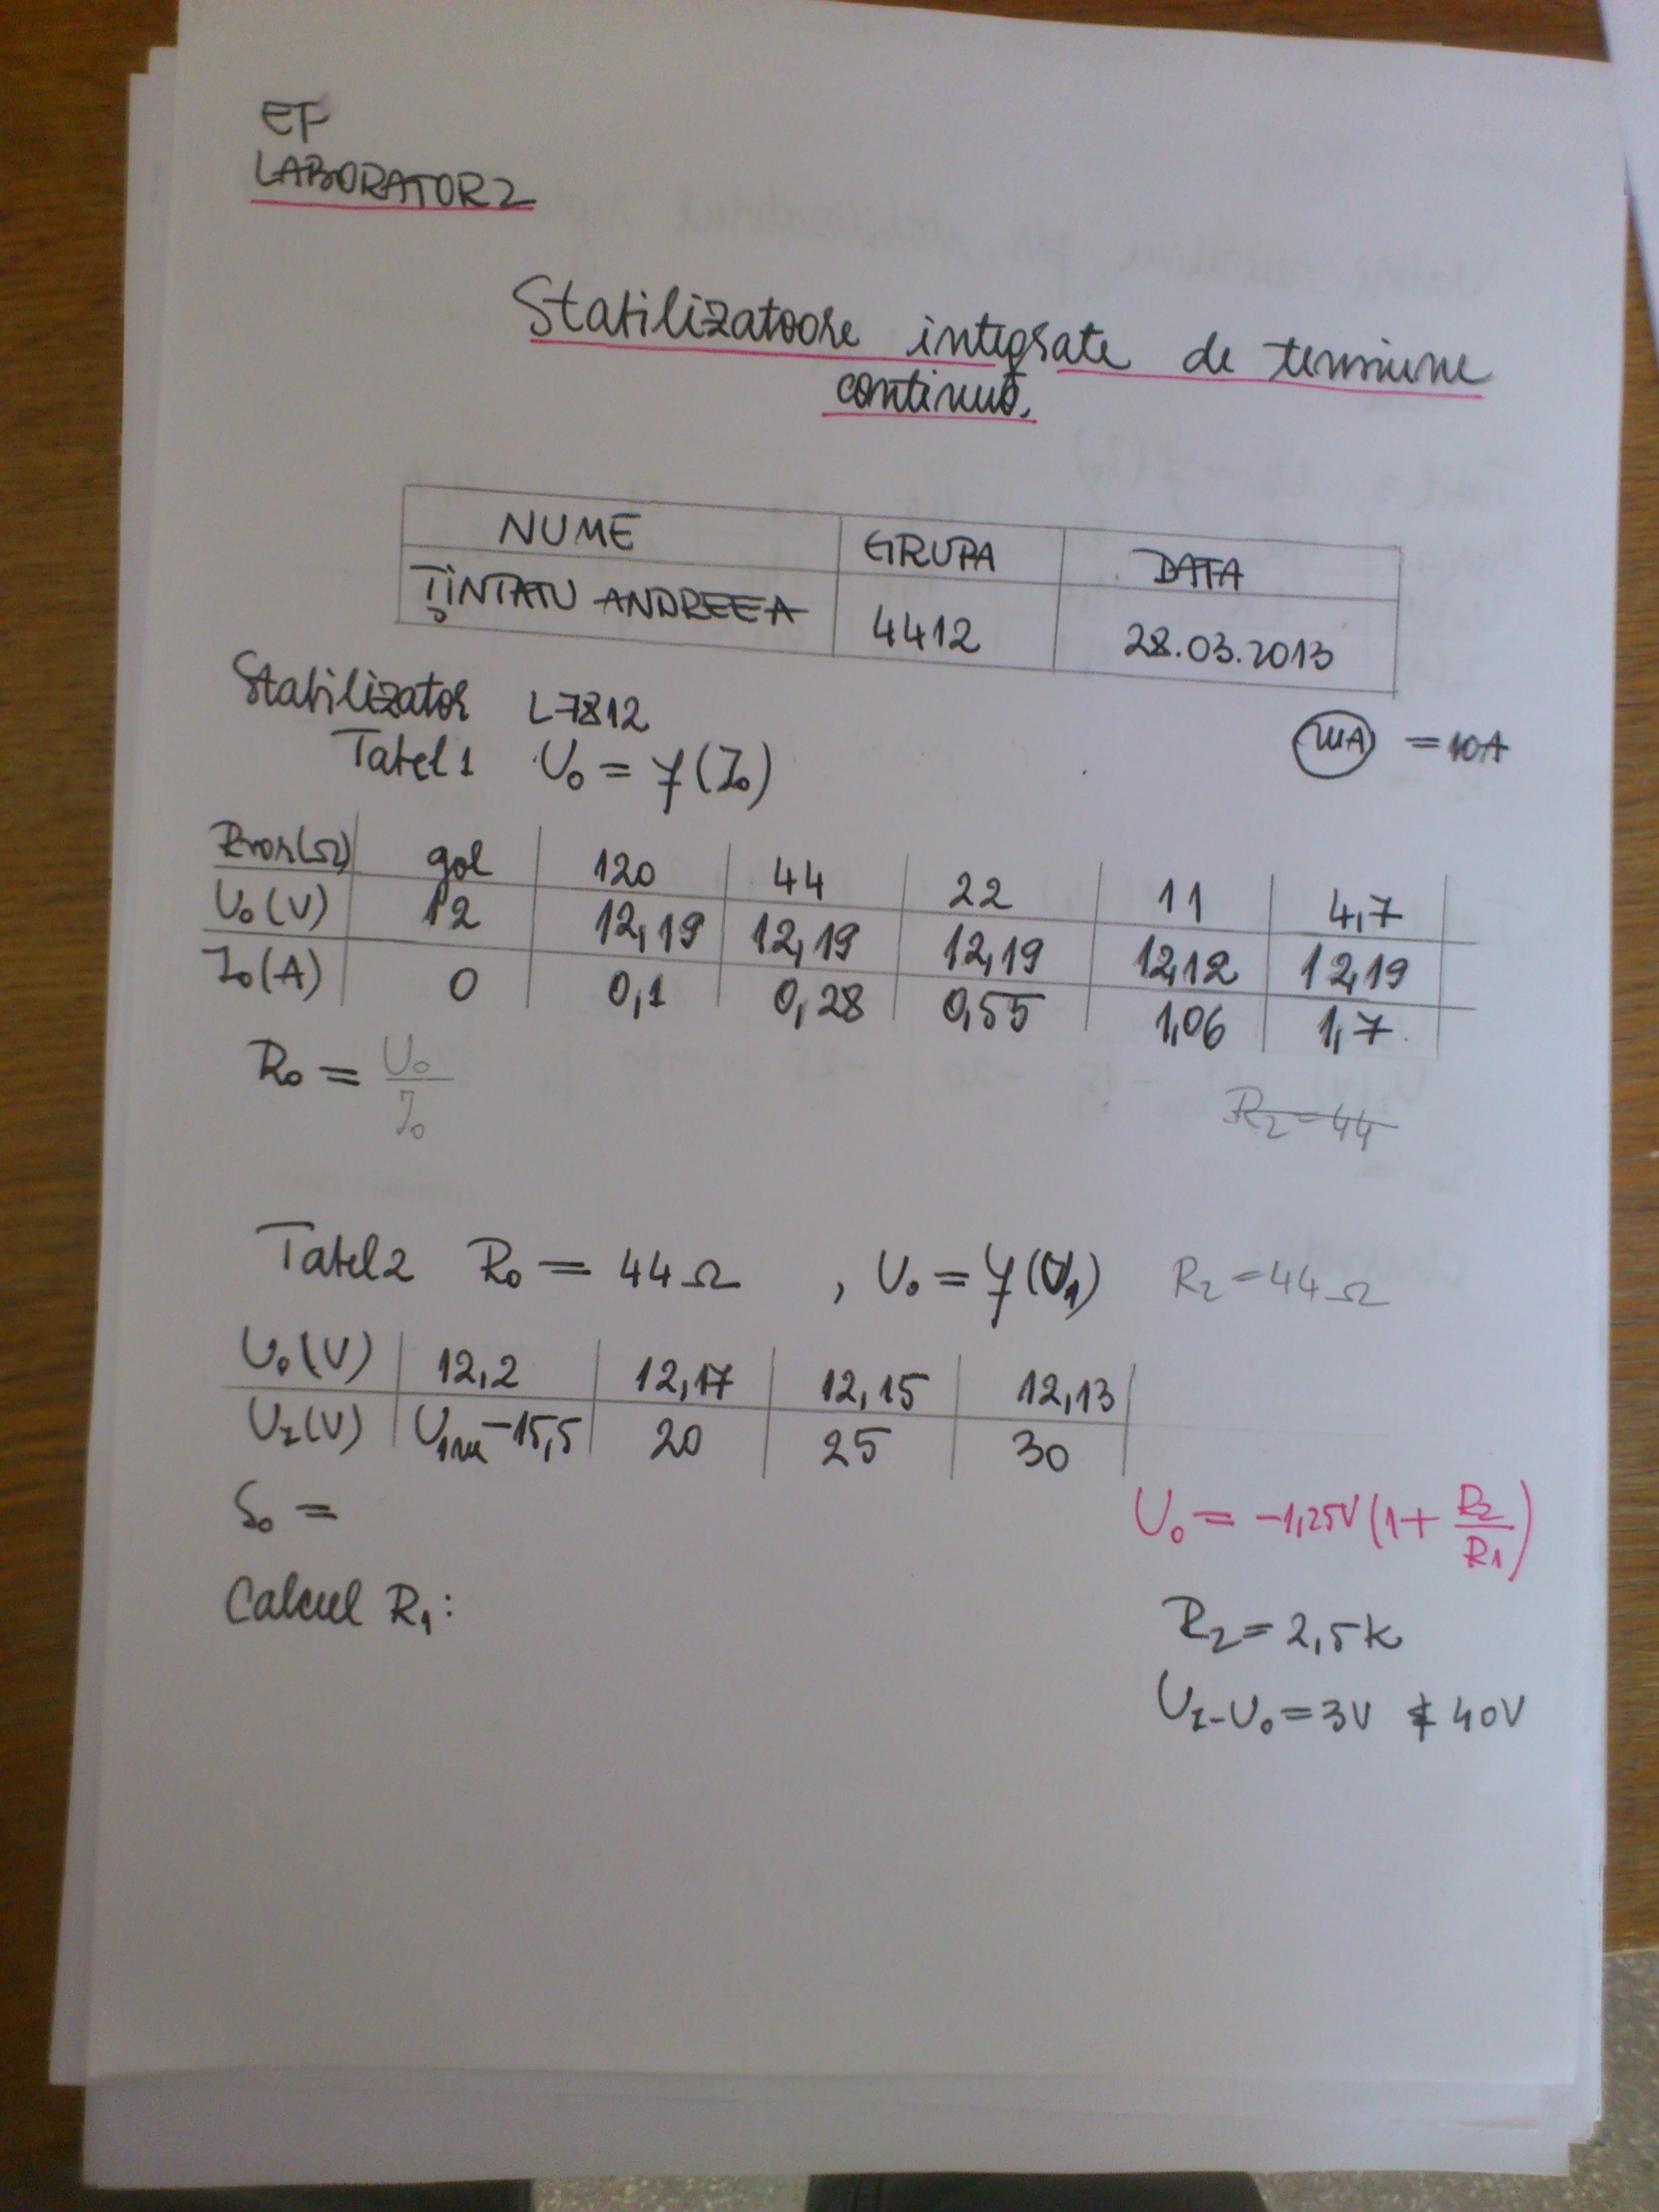 EF
LABORATOR 2
Stabilizatoare integrate de tensiune
continuă.
NUME GRUPA DATA
ȚINTATU ANDREEA 4412 28.03.2013
Stabilizator L7812
mA = 10A
Tabel 1 U₀ = f(I₀)
(Ω) gol 120 44 22 11 4,7
U₀(V) 12 12,19 12,19 12,19 12,12 12,19
I₀(A) 0 0,1 0,28 0,55 1,06 1,7
R₀ = U₀/I₀
R₂=44
Tabel 2 R₀ = 44Ω , U₀ = f(U₁) R₂ = 44Ω
U₀(V) 12,2 12,17 12,15 12,13
U_I(V) -15,5 20 25 30
S₀ =
U₀ = -1,25V(1+ R₂/R₁)
Calcul R₁:
R₂ = 2,5k
U_I-U₀ = 3V 40V